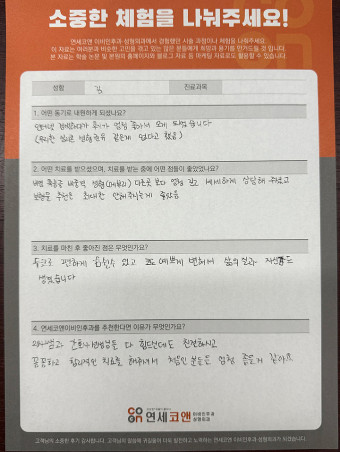 소중한 체험을 나눠주세요!
연세코앤 이비인후과·성형외과에서 경험했던 시술 과정이나 체험을 나눠주세요
이 자료는 여러분과 비슷한 고민을 겪고 있는 많은 분들에게 희망과 용기를 안겨드릴 것 입니다.
본 자료는 학술 논문 및 본원의 홈페이지와 블로그 자료 등 마케팅 자료로도 활용할 수 있습니다.
성함 김 진료과목
1. 어떤 동기로 내원하게 되셨나요?
후기가 엄청 좋아서 오게 되었습니다
2. 어떤 치료를 받으셨으며, 치료를 받는 중에 어떤 점들이 좋았었나요?
다른곳 보다 엄청 길고 세세하게 상담해 주셨고
최대한 안해주시는게 좋았음
3. 치료를 마친 후 좋아진 점은 무엇인가요?
코로 편하게 숨쉴수 있고 코도 예쁘게 변해서 삶의 질과 자신감도
생겼습니다
4. 연세코앤이비인후과를 추천한다면 이유가 무엇인가요?
의사쌤과 간호사쌤분들 다 힘드신데도 친절하시고
꼼꼼하고 치료를 해주셔서 엄청 좋을거 같아요
연세코앤 이비인후과 성형외과
고객님의 소중한 후기 감사합니다. 고객님의 말씀에 귀기울여 더욱 발전하고 노력하는 연세코앤 이비인후과 성형외과가 되겠습니다.